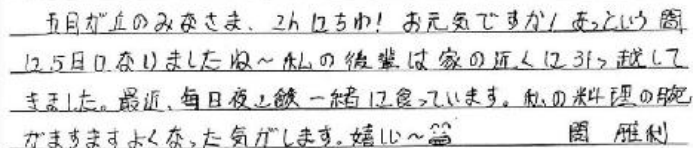 五月が丘のみなさま、こんにちわ! お元気ですか! あっという間
に5月になりましたね〜私の後輩は家の近くに引っ越して
きました。最近、毎日夜ご飯一緒に食っています。私の料理の腕
がますますよくなった気がします。嬉しい〜